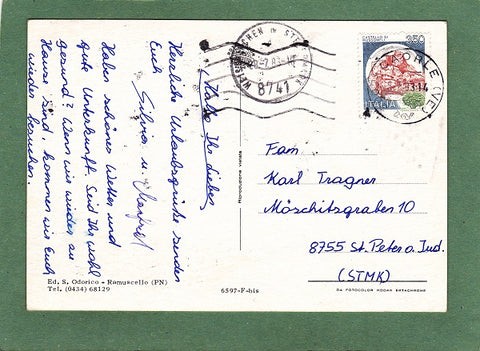 Hallo Ihr Lieben,
Herzliche Urlaubsgrüsse senden
Euch
Silvia u. Manfred
Haben schönes Wetter und
gute Unterkunft. Seid Ihr wohl
gesund? Wenn wir wieder zu
Hause sind, kommen wir Euch
wieder besuchen.
Ed. S. Odorico - Ramuscello (PN)
Tel. (0434) 68129
6597-F-bis
8741
350
ITALIA
CAORLE (VE)
Fam
Karl Tragner
Möschitzgraben 10
8755 St. Peter o. Jud.
(STMK)
DA FOTOCOLOR KODAK EKTACHROME